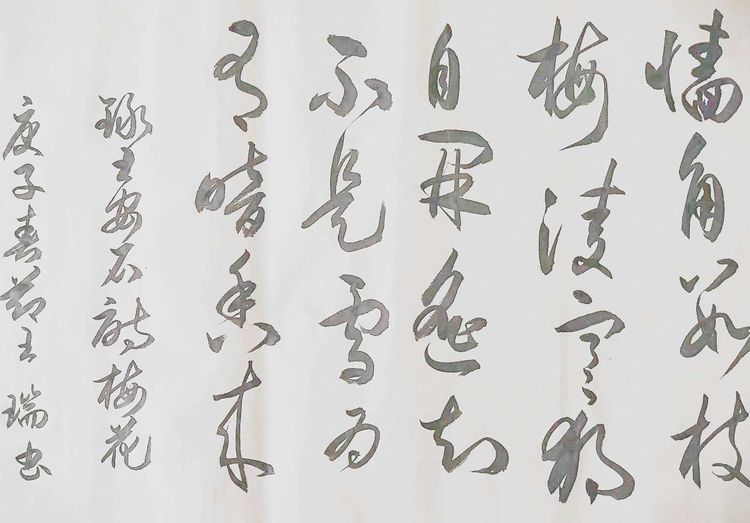 墙角数枝
梅凌寒独
自开遥知
不是雪为
有暗香来
录王安石诗梅花
庚子春节王瑞书